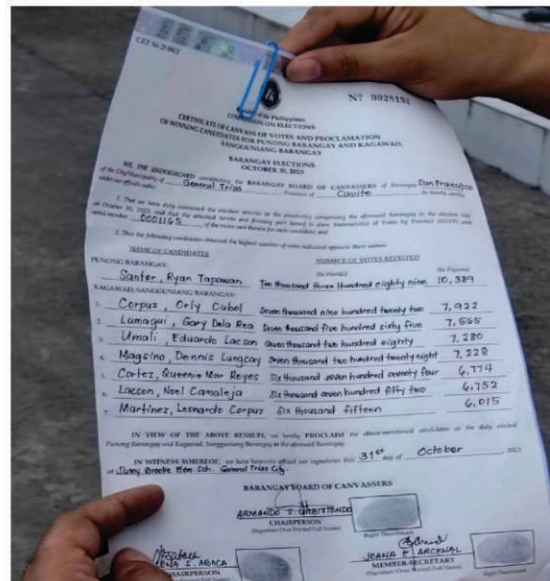 CEF No. 20-B02
Nº 0028192
Republic of the Philippines
COMMISSION ON ELECTIONS
CERTIFICATE OF CANVASS OF VOTES AND PROCLAMATION
OF WINNING CANDIDATES FOR PUNONG BARANGAY AND KAGAWAD,
SANGGUNIANG BARANGAY
BARANGAY ELECTIONS
OCTOBER 30, 2023
WE, THE UNDERSIGNED constituting the BARANGAY BOARD OF CANVASSERS of Barangay San Francisco
of the City/Municipality of General Trias Province of Cavite do hereby certify
under our official oaths:
1. That we have duly canvassed the election returns in the precinct(s) comprising the aforesaid Barangay in the election held
on October 30, 2023 and that the attached serves and forming part hereof is a/are Statement(s) of Votes by Precinct (SOVP) with
serial number 0001165 of the votes cast therein for each candidate; and
2. That the following candidates obtained the highest number of votes indicated opposite their names:
NAME OF CANDIDATES NUMBER OF VOTES RECEIVED
(In Words) (In Figures)
PUNONG BARANGAY:
Ryan Ten thousand three hundred eighty nine 10,389
KAGAWAD, SANGGUNIANG BARANGAY:
1. Corpuz, Orly Cubol Seven thousand nine hundred twenty two 7,922
2. Lumaqui, Gary Dela Rea Seven thousand five hundred sixty five 7,565
3. Umali, Eduardo Lacson Seven thousand two hundred eighty 7,280
4. Magsino, Dennis Lungcay Seven thousand two hundred twenty eight 7,228
5. Cortez, Queenie Mar Reyes Six thousand seven hundred seventy four 6,774
6. Lacson, Noel Camaleja Six thousand seven hundred fifty two 6,752
7. Martinez, Leonardo Corpuz Six thousand fifteen 6,015
IN VIEW OF THE ABOVE RESULTS, we hereby PROCLAIM the above-mentioned candidates as the duly elected
Punong Barangay and Kagawad, Sangguniang Barangay in the aforesaid Barangay.
IN WITNESS WHEREOF, we have hereunto affixed our signatures this 31st day of October 2023
at Sunny Brooke Elem. Sch. General Trias City.
BARANGAY BOARD OF CANVASSERS
ARMANDO S.
CHAIRPERSON
(Signature Over Printed Full Name)
Right Thumbmark
S. ABACA
CHAIRPERSON
(Signature Over Printed Full Name)
JOANA ARCENAL
MEMBER-SECRETARY
(Signature Over Printed Full Name)
Right Thumbmark